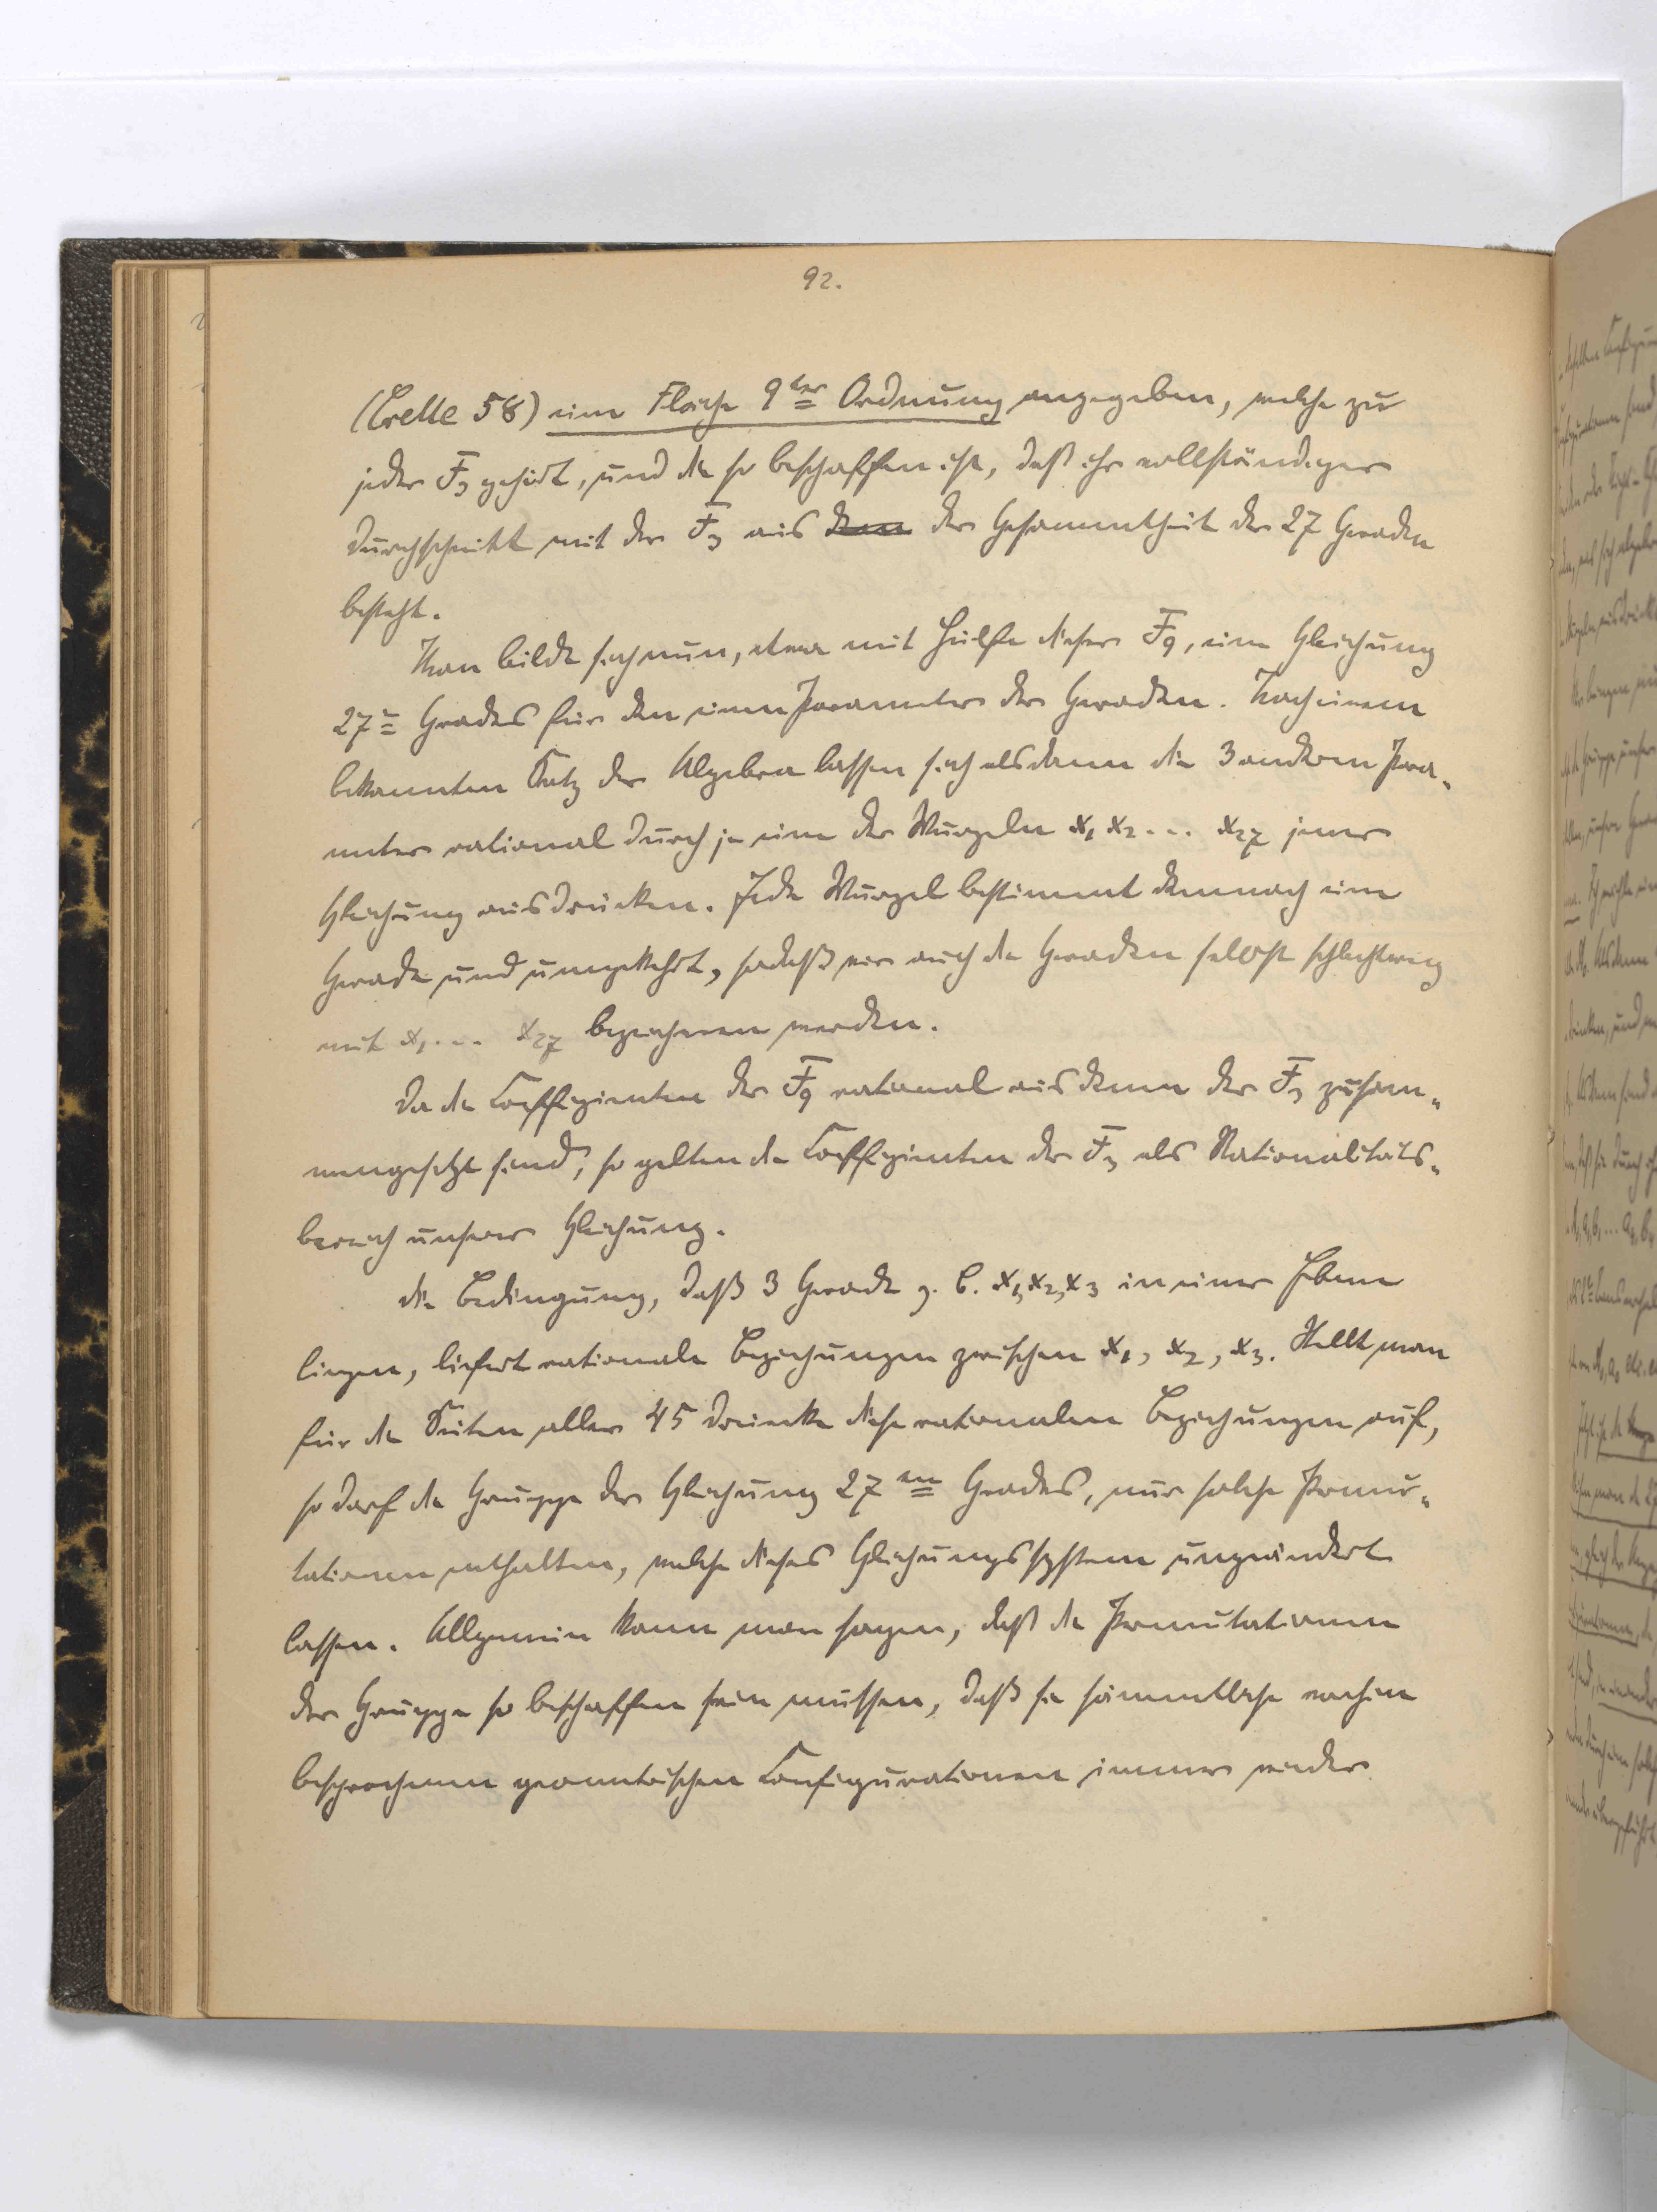 92.
(Crelle 58) eine Fläche 9ter Ordnung angegeben, welche zu
jeder F3 gehört, und die so beschaffen ist, daß ihr vollständiger
Durchschnitt mit der F3 aus dem der Gesammtheit der 27 Geraden
besteht.
Man bilde sich nun, etwa mit Hülfe dieser F9, eine Gleichung
27n Grades für den einen Parameter der Geraden. Nach einem
bekannten Satz der Algebra lassen sich alsdann die 3 anderen Para-
meter rational durch je eine der Wurzeln x1 x2 ... x27 jener
Gleichung ausdrücken. Jede Wurzel bestimmt demnach eine
Gerade und umgekehrt, sodaß wir auch die Geraden selbst schlechtweg
mit x1 ... x27 bezeichnen werden.
Da die Coeffizienten der F9 rational aus denen der F3 zusam-
mengesetzt sind, so gelten die Coeffizienten der F3 als Rationalitäts-
bereich unserer Gleichung.
Die Bedingung, daß 3 Gerade z. B. x1, x2, x3 in einer Ebene
liegen, liefert rationale Beziehungen zwischen x1, x2, x3. Stellt man
für die Seiten aller 45 Dreiecke diese rationalen Beziehungen auf,
so darf die Gruppe der Gleichung 27ten Grades, nur solche Permu-
tationen enthalten, welche dieses Gleichungssystem ungeändert
lassen. Allgemein kann man sagen, daß die Permutationen
der Gruppe so beschaffen sein müssen, daß sie sämmtliche vorhin
besprochenen geometrischen Configurationen immer wieder